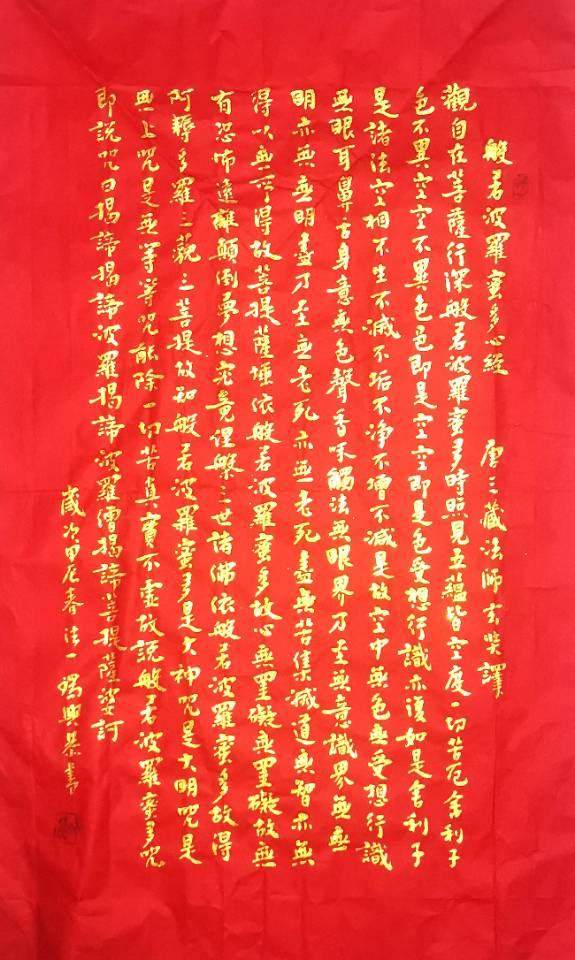 般若波羅蜜多心經 唐三藏法師玄奘譯
觀自在菩薩行深般若波羅蜜多時照見五蘊皆空度一切苦厄舍利子
色不異空空不異色色即是空空即是色受想行識亦復如是舍利子
是諸法空相不生不滅不垢不净不增不減是故空中無色無受想行識
無眼耳鼻舌身意無色聲香味觸法無眼界乃至無意識界無無
明亦無無明盡乃至無老死亦無老死盡無苦集滅道無智亦無
得以無所得故菩提薩埵依般若波羅蜜多故心無罣礙無罣礙故無
有恐怖遠離顛倒夢想究竟涅槃三世諸佛依般若波羅蜜多故得
阿耨多羅三藐三菩提故知般若波羅蜜多是大神咒是大明咒是
無上咒是無等等咒能除一切苦真實不虛故說般若波羅蜜多咒
即說咒曰揭諦揭諦波羅揭諦波羅僧揭諦菩提薩婆訶
歲次甲辰春法一興恭書